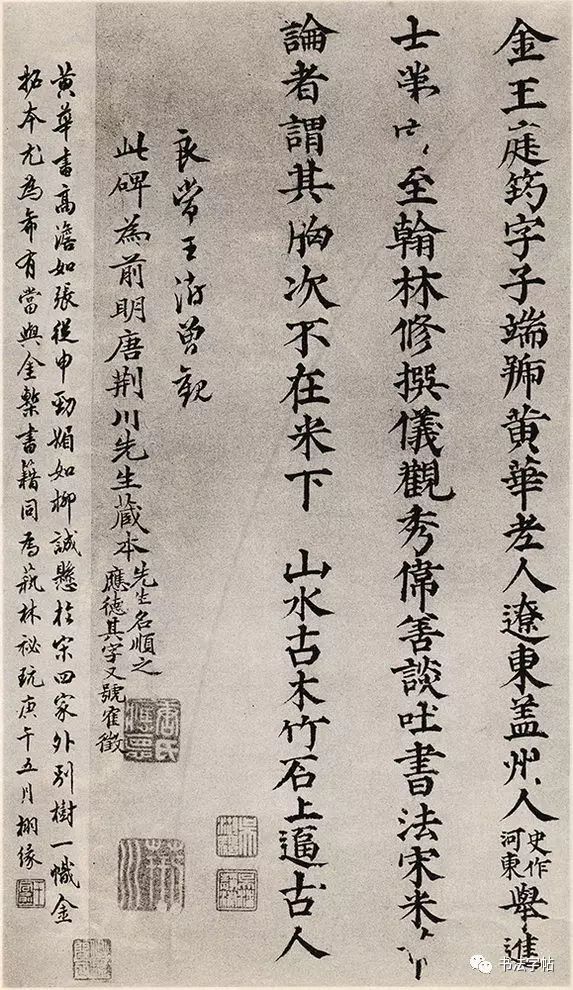 金王庭筠字子端號黄華老人遼東盖州人史作河東舉進
士第至翰林修撰儀觀秀偉善談吐書法宋米
論者謂其胸次不在米下 山水古木竹石上逼古人
良常王澍曾觀
此碑為前明唐荆川先生蔵本先生名順之應德其字又號雚徵
唐氏應德
荆川
黄華書高澹如張從申勁媚如柳誠懸於宋四家外别樹一幟金
拓本尤為希有當與金槧書籍同為蓺林祕玩庚午五月栩緣
书法字帖